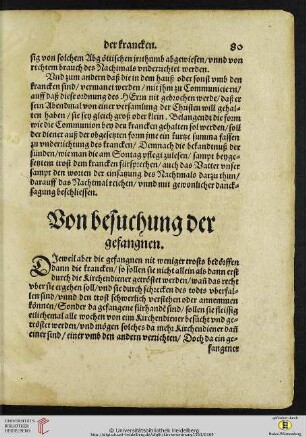 der krancken. 80
sig von solchem Abgöttischen jrrthumb abgewiesen/ vnnd von
rechtem brauch des Nachtmals vnderrichtet werden.
Vnd zum andern daß die in dem hauß oder sonst vmb den
krancken sind/ vermanet werden/ mit jhm zu Communiciern/
auff daß diese ordnung des HErrn nit gebrochen werde/ daß er
sein Abendmal von einer versamlung der Christen will gehal-
ten haben/ sie sey gleich groß oder klein. Belangendt die form
wie die Communion bey den krancken gehalten sol werden/ soll
der diener auß der obgesetzten form jme ein kurtze summa fassen
zu vnderrichtung des krancken/ Demnach die bekandtnuß der
sünden/ wie man die am Sontag pflegt zulesen/ sampt beyge-
setztem trost dem krancken fürsprechen/ auch das Vatter vnser
sampt den worten der einsatzung des Nachtmals darzu thun/
darauff das Nachtmal reichen/ vnnd mit gewonlicher danck-
sagung beschliessen.
Von besuchung der
gefangnen.
DJeweil aber die gefangnen nit weniger trosts bedörffen
dann die krancken/ so sollen sie nicht allein als dann erst
durch die Kirchendiener getröstet werden/ wañ das recht
vber sie ergehen soll/ vnd sie durch schrecken des todts vberfal-
len sind/ vnnd den trost schwerlich verstehen oder annemmen
können/ Sonder da gefangene fürhanden sind/ sollen sie fleissig
etlichemal alle wochen von eim Kirchendiener besücht vnd ge-
tröstet werden/ vnd mögen solches da mehr Kirchendiener dañ
einer sind/ einer vmb den andern verrichten/ Doch da ein ge-
fangener
UNIVERSITÄTS-
BIBLIOTHEK
HEIDELBERG
© Universitätsbibliothek Heidelberg
gefördert durch